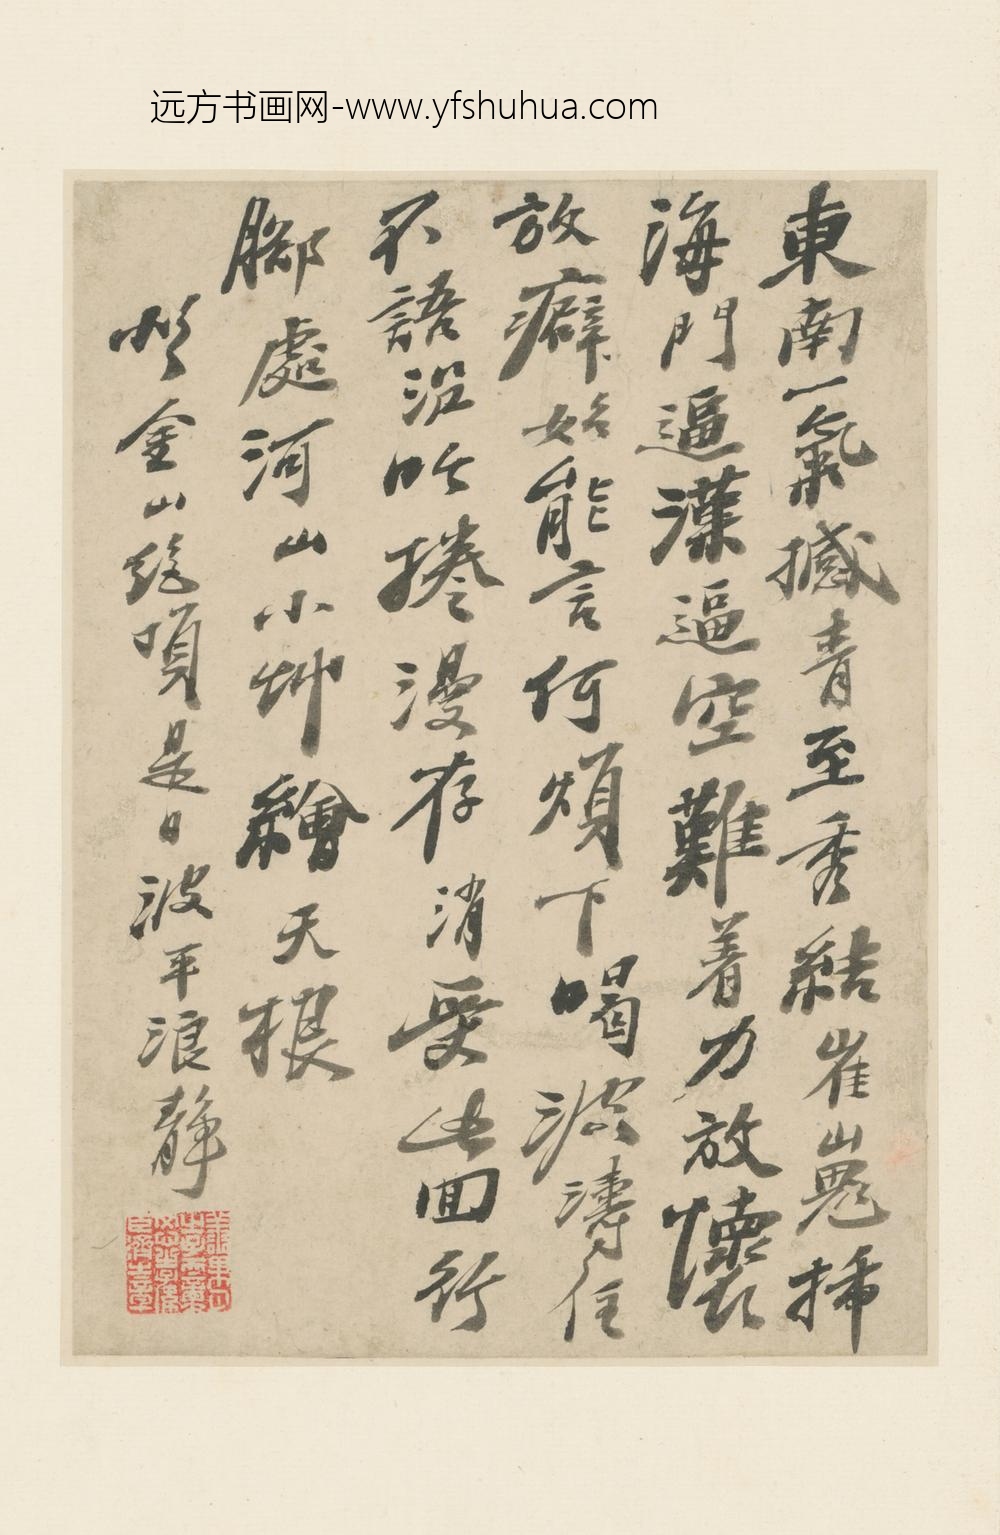 远方书画网-www.yfshuhua.com
東南一氣撼青至秀結崔嵬掃
海門逼漢逼空難着力放懷
放癖始能言何煩下喝波濤住
不語沿吟捲漫存消受此回行
腳處河山小艸繪天根
登金山絕頂是日波平浪靜